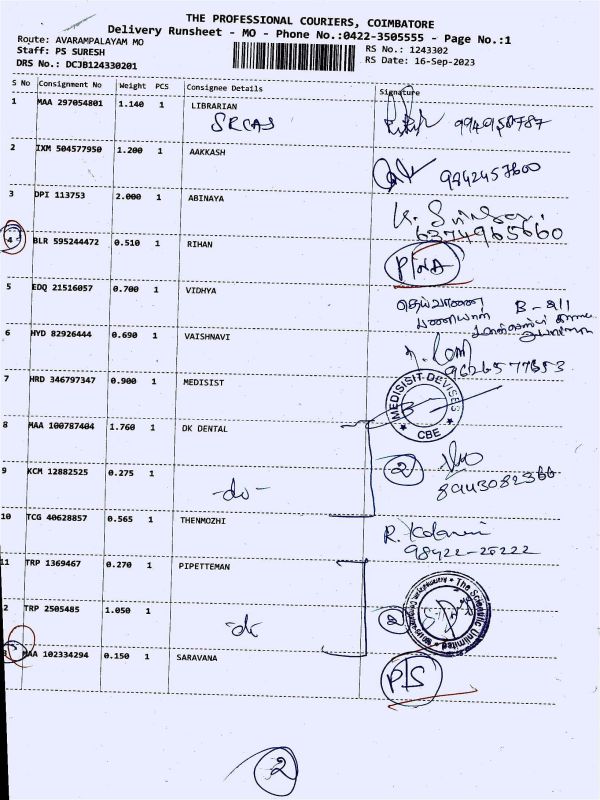 THE PROFESSIONAL COURIERS, COIMBATORE
Delivery Runsheet - MO - Phone No.:0422-3505555 - Page No.:1
Route: AVARAMPALAYAM MO
RS No.: 1243302
Staff: PS SURESH
RS Date: 16-Sep-2023
DRS No.: DCJB124330201
S No Consignment No Weight PCS Consignee Details Signature
1 MAA 297054801 1.140 1 LIBRARIAN
SRCAS
2 IXM 504577950 1.200 1 AAKKASH
9842457600
3 DPI 113753 2.000 1 ABINAYA
6374965660
4 BLR 595244472 0.510 1 RIHAN
P/NA
5 EDQ 21516057 0.700 1 VIDHYA
6 HYD 82926444 0.690 1 VAISHNAVI
9626577653
7 HRD 346797347 0.900 1 MEDISIST
MEDISISIT DEVISES
CBE
8 MAA 100787404 1.760 1 DK DENTAL
2
9 KCM 12882525 0.275 1
-do-
8943082366
10 TCG 40628857 0.565 1 THENMOZHI
98422-20222
11 TRP 1369467 0.270 1 PIPETTEMAN
The Scientific Unlimited
2 TRP 2505485 1.050 1
-do
2
MAA 102334294 0.150 1 SARAVANA
P/S
2